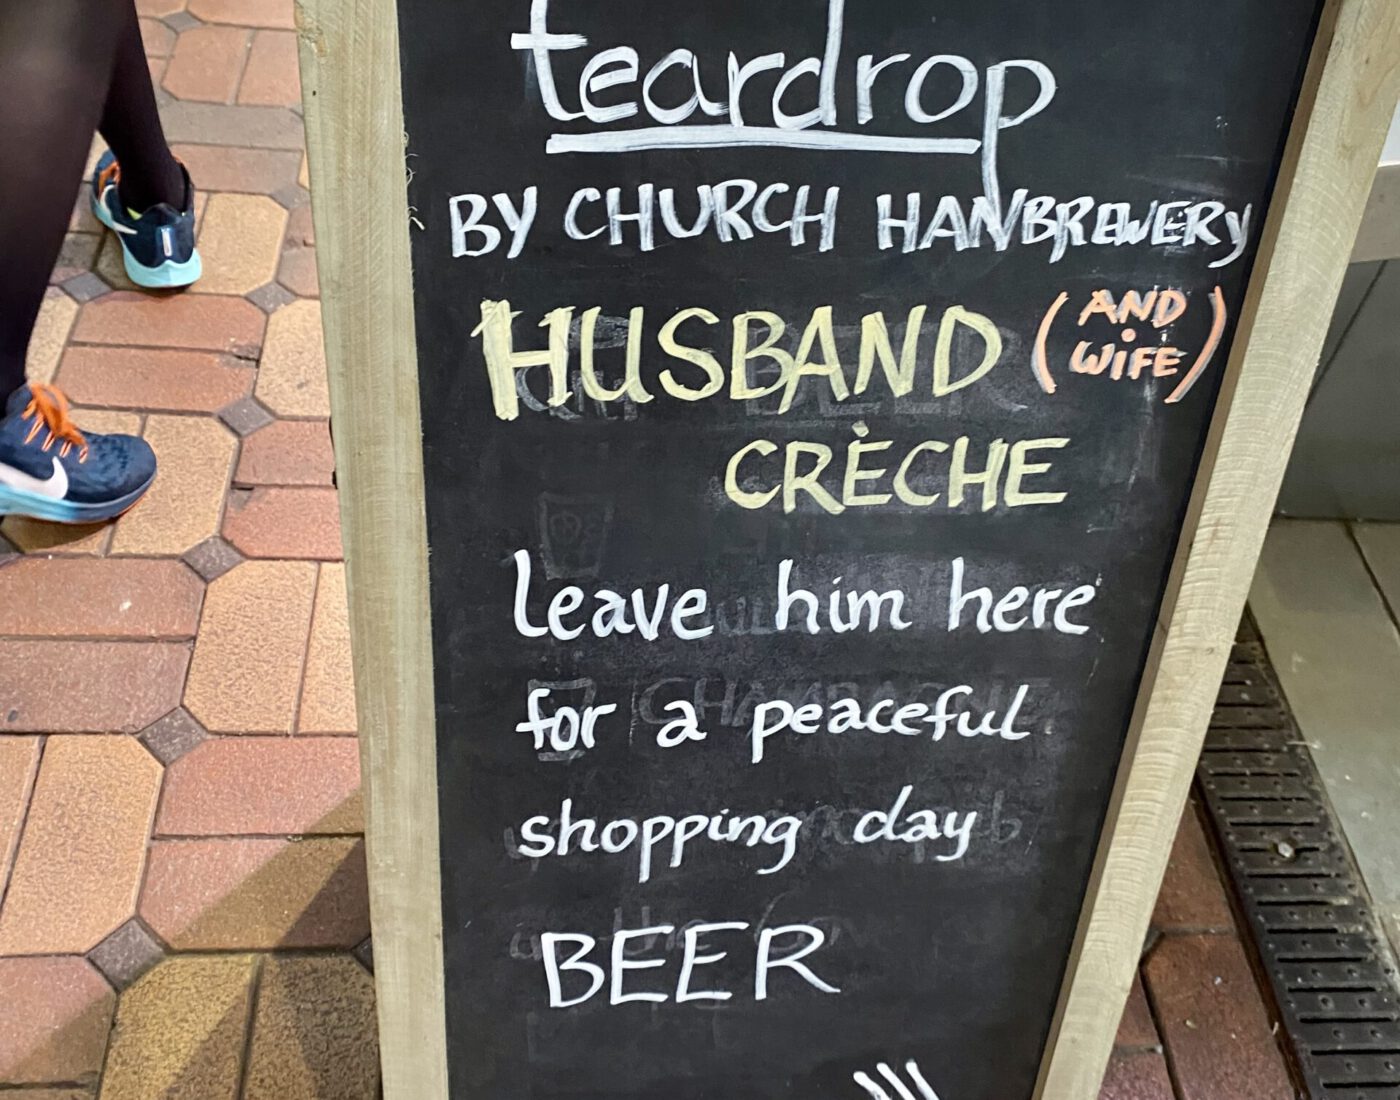 teardrop
BY CHURCH HANBREWERY
HUSBAND (AND WiFE)
CRÈCHE
leave him here
for a peaceful
shopping day
BEER